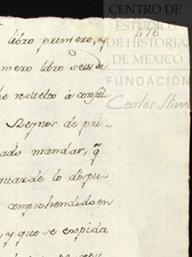 CENTRO DE
ESTUDIOS
DE HISTORIA
DE MEXICO
FUNDACIÓN
Carlos Slim
476
libro primero, es
mero libro
he resuelto à
Reynos de pri-
ado mandar, q
guarde lo dispu
comprehendido en
y que se expida